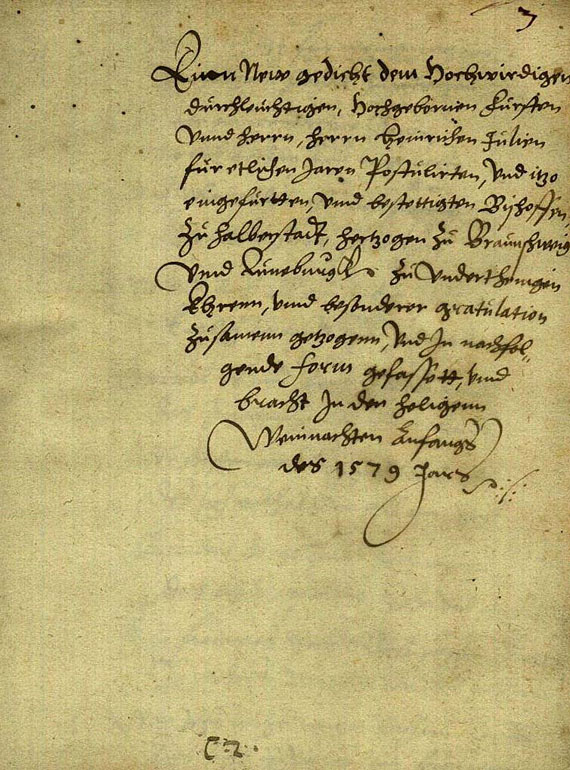 3
Einn New gedicht dem Hochwirdigen
durchleuchtigen, Hochgebornen Fürsten
vnnd herrn, herrn Heinrichen Julien
für etlichen Jaren Postulirten, vnd itzo
eingefürtten, vnnd bestettigten Bischoffen
zu Halberstadt, hertzogen zu Braunschweig
vnnd Luneburgk zu vnderthenigen
Ehrenn, vnnd besonderer gratulation
zusamenn getzogenn, vnd In nachfol-
gende form gefassett, vnnd
bracht In den heligenn
Weinnachten Anfangs
des 1579 Jars
C 2